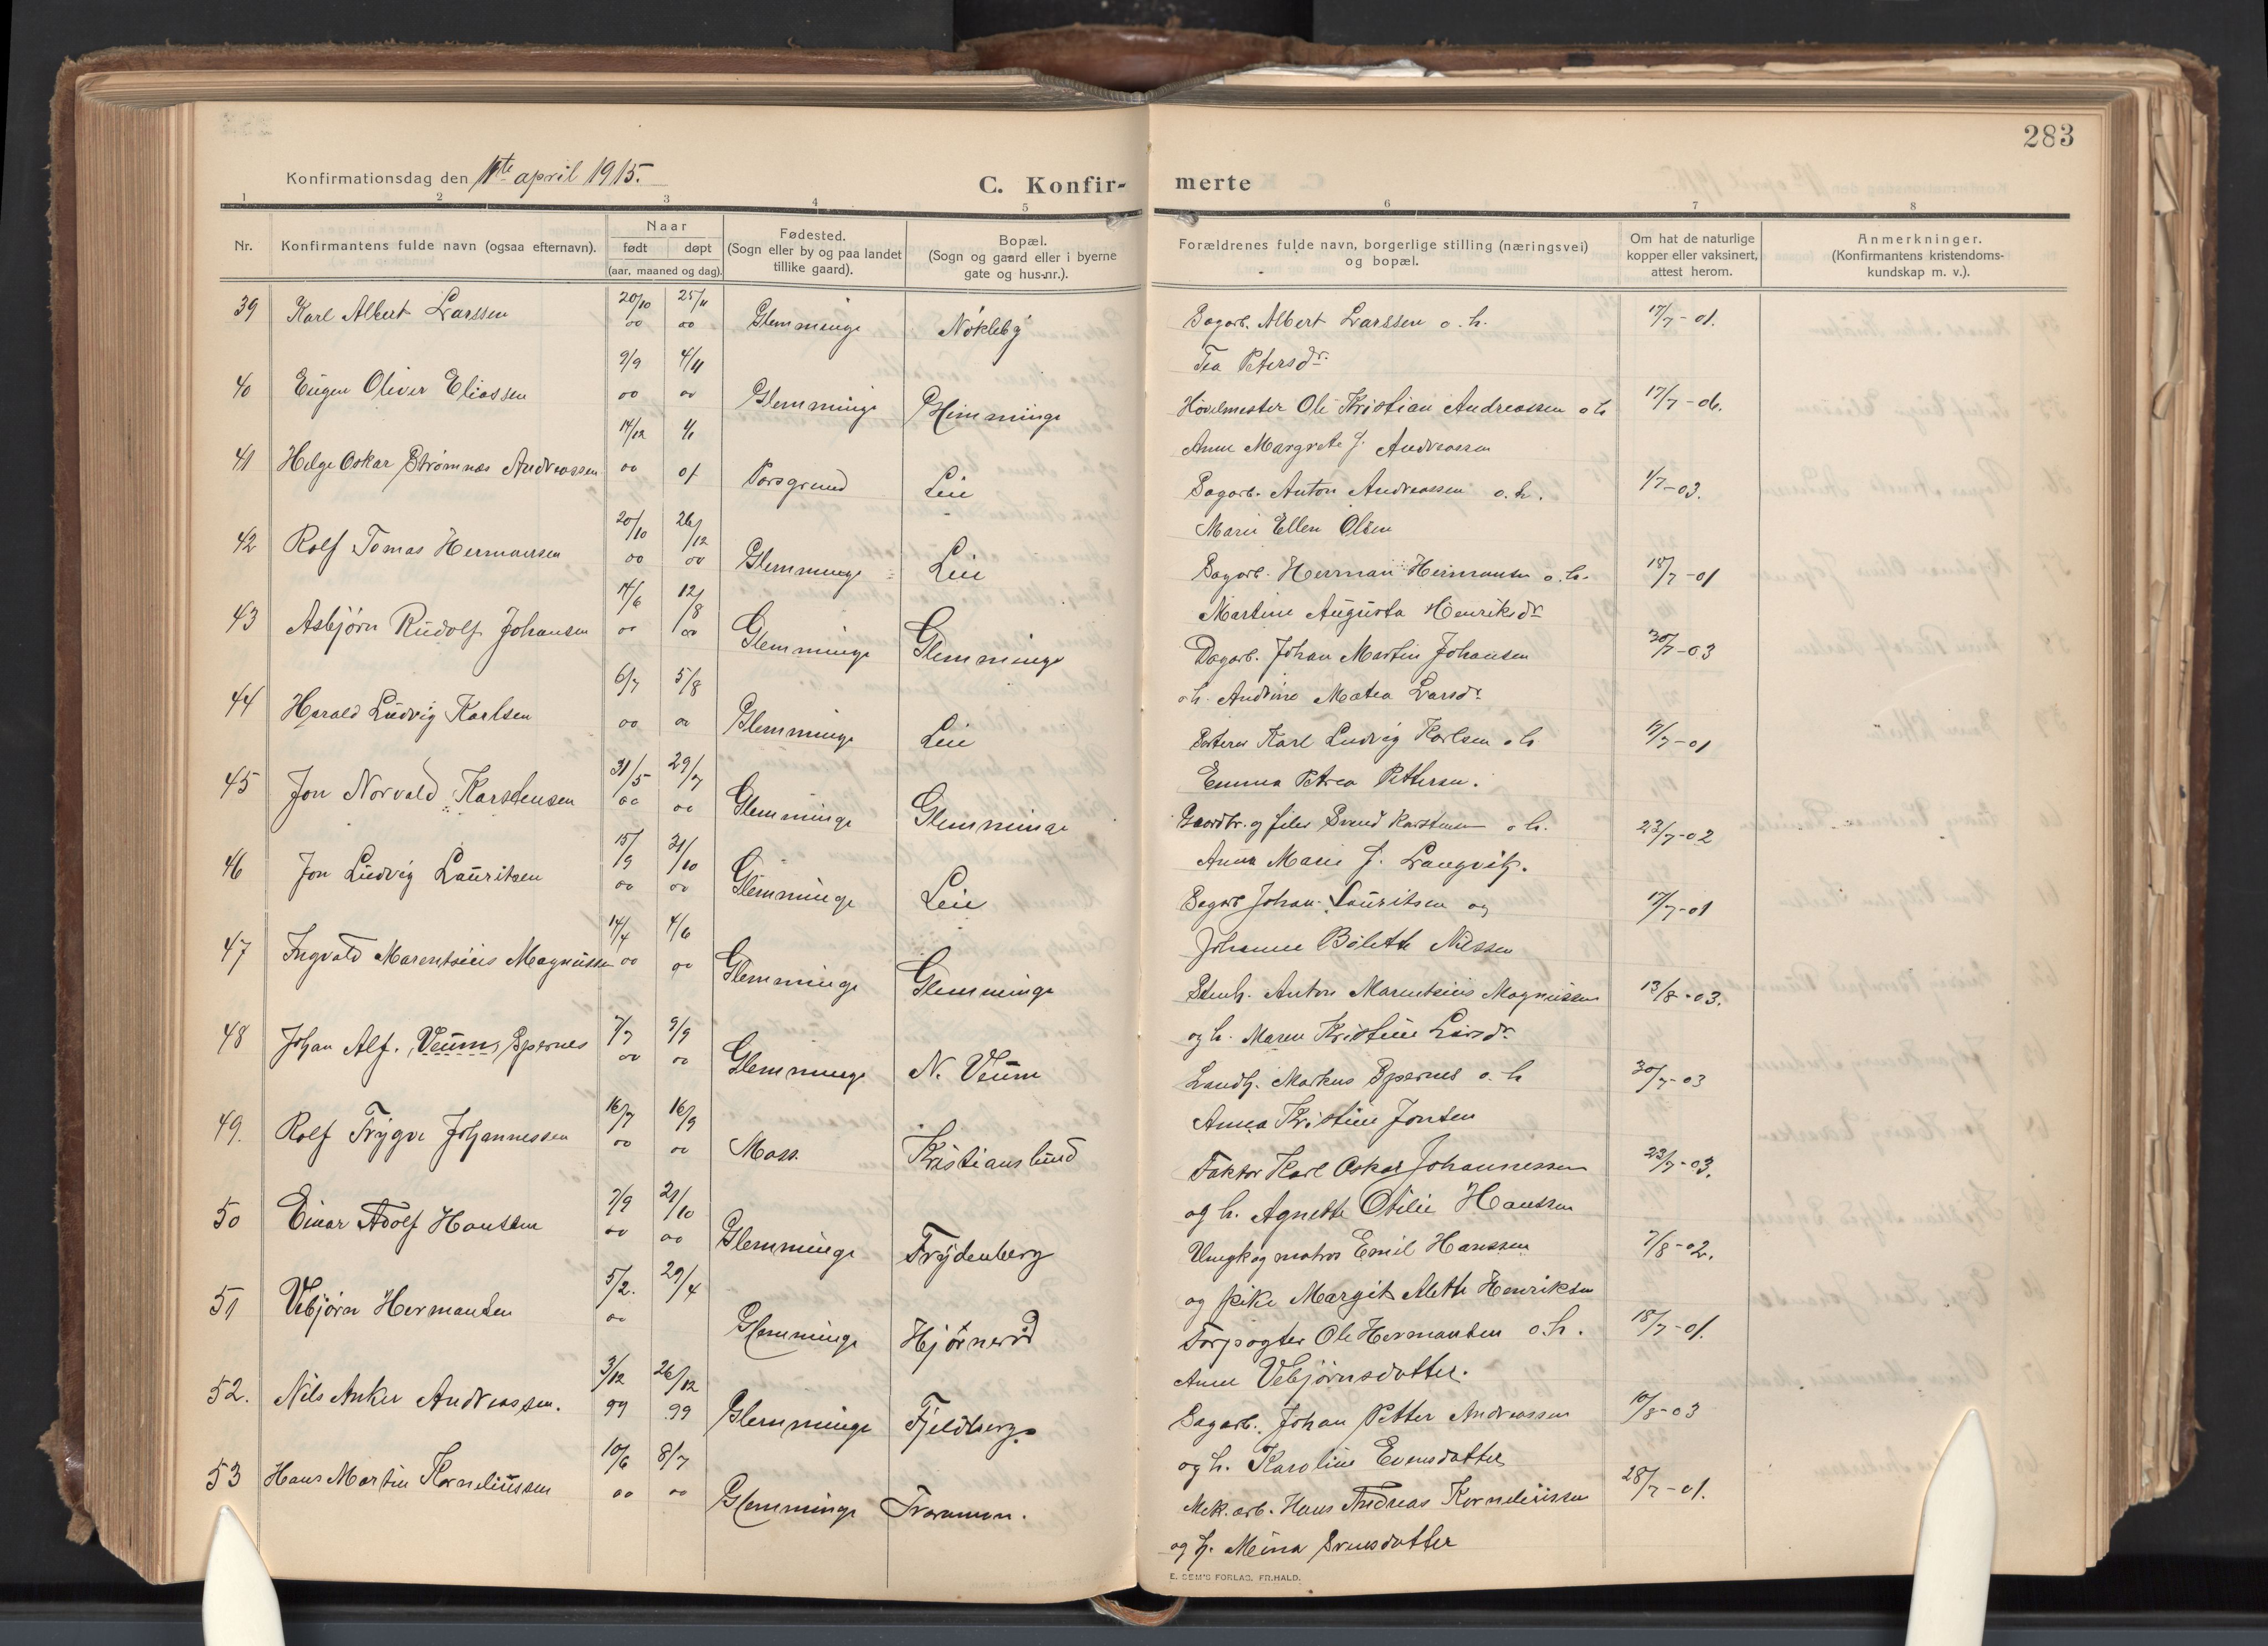 283
Konfirmationsdag den 11te april 1915.
C. Konfir-
merte
1 2 3 4 5 6 7 8
Nr. Konfirmantens fulde navn (ogsaa efternavn). Naar født døpt (aar, maaned og dag). Fødested. (Sogn eller by og paa landet tillike gaard). Bopæl. (Sogn og gaard eller i byerne gate og hus-nr.). Forældrenes fulde navn, borgerlige stilling (næringsvei) og bopæl. Om hat de naturlige kopper eller vaksinert, attest herom. Anmerkninger. (Konfirmantens kristendoms-kundskap m. v.).
39 Karl Albert Larssen 20/10 00 25/11 00 Glemminge Nøkleby Sagarb. Albert Larssen o. h. 17/7-01.
Tea Petersdr.
40 Eugen Oliver Eliassen 9/9 00 4/11 00 Glemminge Glemminge Høvelmester Ole Kristian Andreassen o h 17/7-06.
Anne Margrete J. Andreassen
41 Helge Oskar Strømnæs Andreassen 14/12 00 1/1 01 Porsgrund Leie Sagarb. Anton Andreassen o. h. 1/7-03.
Marie Ellen Olsen
42 Rolf Tomas Hermansen 20/10 00 26/12 00 Glemminge Leie Sagarb. Herman Hermansen o. h. 18/7-01
Martine Augusta Henriksdr
43 Asbjørn Rudolf Johansen 14/6 00 12/8 00 Glemminge Glemminge Dagarb. Johan Martin Johansen 30/7-03
o h. Andrine Matea Larsdr
44 Harald Ludvig Karlsen 6/7 00 5/8 00 Glemminge Leie Sorterer Karl Ludvig Karlsen o h 17/7-01
Emma Petrea Pettersen.
45 Jon Norvald Karstensen 31/5 00 29/7 00 Glemminge Glemminge Gaardbr. og filer Svend Karstensen o h. 23/7-02
Anna Marie J. Langvik.
46 Jon Ludvig Lauritsen 15/9 00 21/10 00 Glemminge Leie Sagarb Johan Lauritsen og 17/7-01
Johanne Bolette Nilssen
47 Ingvald Marentsius Magnussen 14/4 00 4/6 00 Glemminge Glemminge Stenh. Anton Marentsius Magnussen 13/8-03.
og h. Maren Kristine Larsdr
48 Johan Alf. Veum, Spernes 7/7 00 9/9 00 Glemminge N. Veum Landh. Markus Spernes o. h 30/7-03
Anna Kristine Jonsen
49. Rolf Trygve Johannessen 16/7 00 16/9 00 Moss Kristianslund Faktor Karl Oskar Johannessen 23/7-03.
og h. Agnethe Otilie Hanssen
50 Einar Adolf Hanssen 7/9 00 21/10 00 Glemminge Frydenberg Ungk og matros Emil Hanssen 7/8-02.
og pike Margit Alette Henriksen
51 Vebjørn Hermansen 5/2. 00 29/4 Glemminge Hjørnerød Forpagter Ole Hermansen o. h. 18/7-01.
Anne Vebjørnsdatter.
52. Nils Anker Andreassen. 3/12 99 26/12 99 Glemminge Fjeldberg Sagarb. Johan Petter Andreassen 10/8-03
og h. Karoline Evensdatter
53 Hans Martin Korneliussen 10/6 00 8/7 00 Glemminge Traramen. Mek. arb. Hans Andreas Korneliussen 28/7-01.
og h. Meina Svensdatter
E. SEM'S FORLAG, FR.HALD.